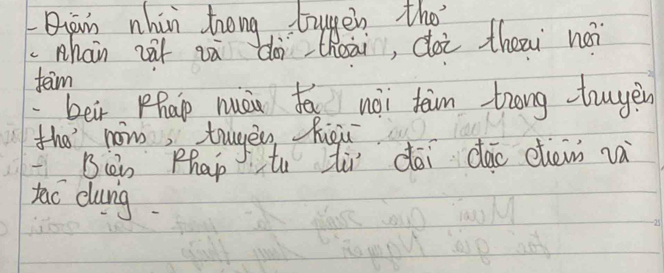 - Điểm nhìn trong truyện thơ
- Nhân vật và đối thoại, độc thoại nội
tâm
- bút Pháp miêu tả nội tâm trong truyện
thơ nôm, truyện kiều
Biện Pháp tu từ đối đặc điểm và
tác dụng.